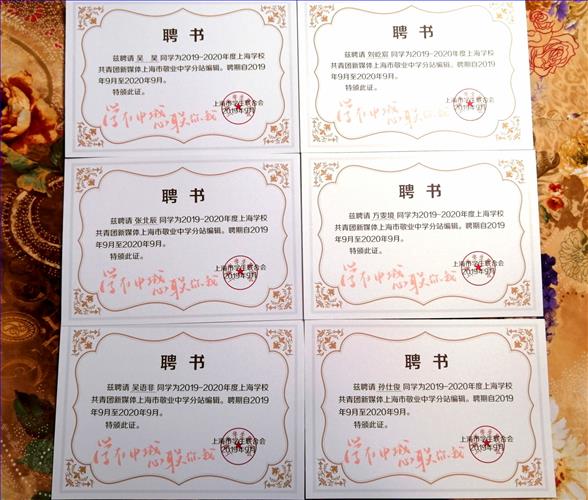 聘书
兹聘请 吴 昊 同学为2019-2020年度上海学校
共青团新媒体上海市敬业中学分站编辑。聘期自2019
年9月至2020年9月。
特颁此证。
上海市学生联合会
2019年9月
聘书
兹聘请 刘屹宸 同学为2019-2020年度上海学校
共青团新媒体上海市敬业中学分站编辑。聘期自2019
年9月至2020年9月。
特颁此证。
上海市学生联合会
2019年9月
聘书
兹聘请 张北辰 同学为2019-2020年度上海学校
共青团新媒体上海市敬业中学分站编辑。聘期自2019
年9月至2020年9月。
特颁此证。
上海市学生联合会
2019年9月
聘书
兹聘请 方雯境 同学为2019-2020年度上海学校
共青团新媒体上海市敬业中学分站编辑。聘期自2019
年9月至2020年9月。
特颁此证。
上海市学生联合会
2019年9月
聘书
兹聘请 吴语非 同学为2019-2020年度上海学校
共青团新媒体上海市敬业中学分站编辑。聘期自2019
年9月至2020年9月。
特颁此证。
上海市学生联合会
2019年9月
聘书
兹聘请 孙仕俊 同学为2019-2020年度上海学校
共青团新媒体上海市敬业中学分站编辑。聘期自2019
年9月至2020年9月。
特颁此证。
上海市学生联合会
2019年9月